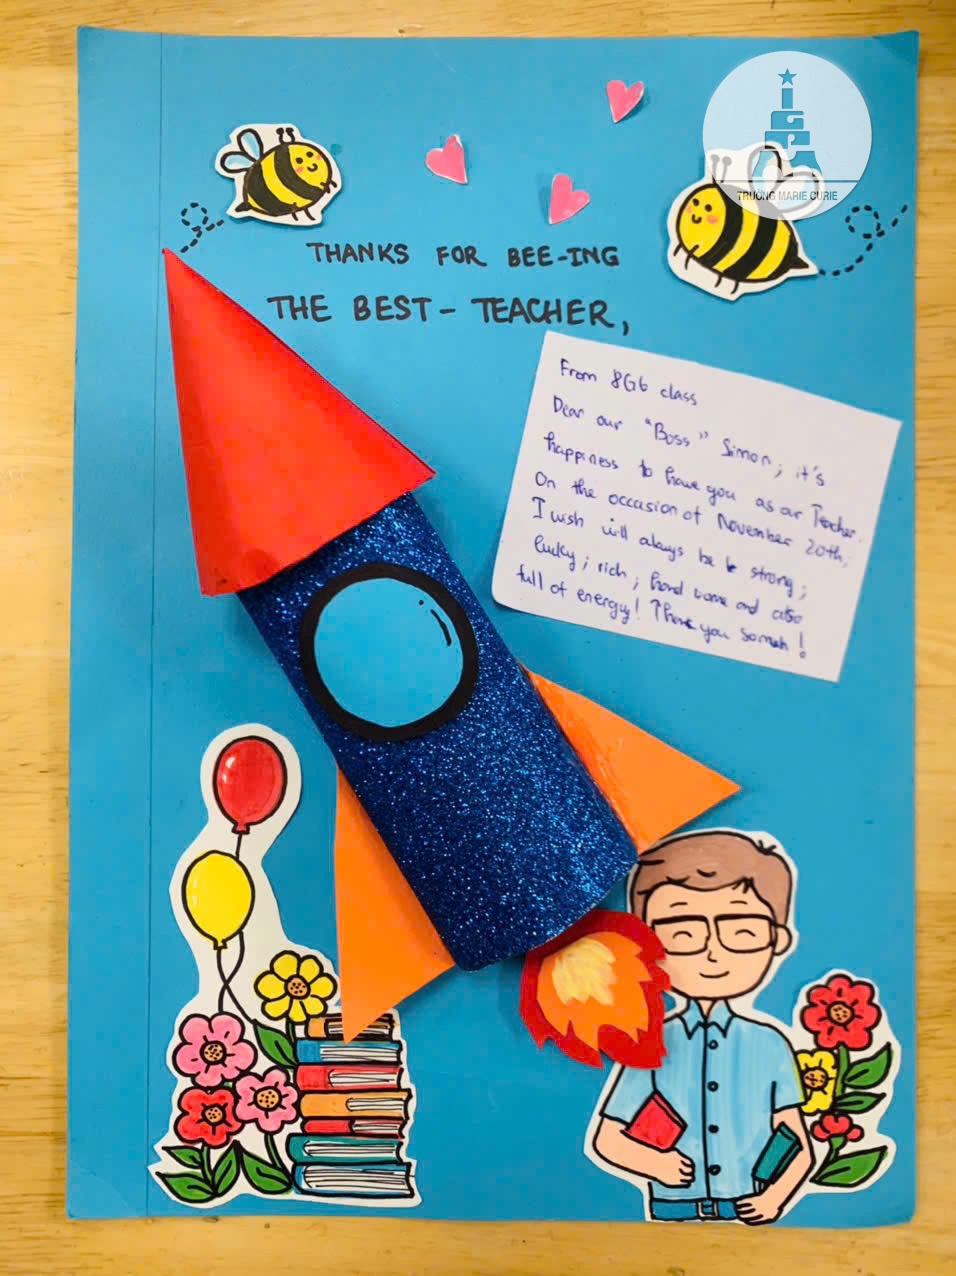 IGPM
TRƯỜNG MARIE CURIE
THANKS FOR BEE-ING
THE BEST - TEACHER,
From 8G6 class
Dear our "Boss" Simon; it's
happiness to have you as our Teacher.
On the occasion of November 20th,
I wish will always be strong;
lucky; rich; and also
full of energy! Thank you so much!